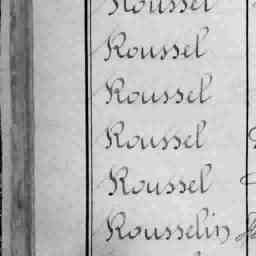 Roussel
Roussel
Roussel
Roussel
Roussel
Rousselin